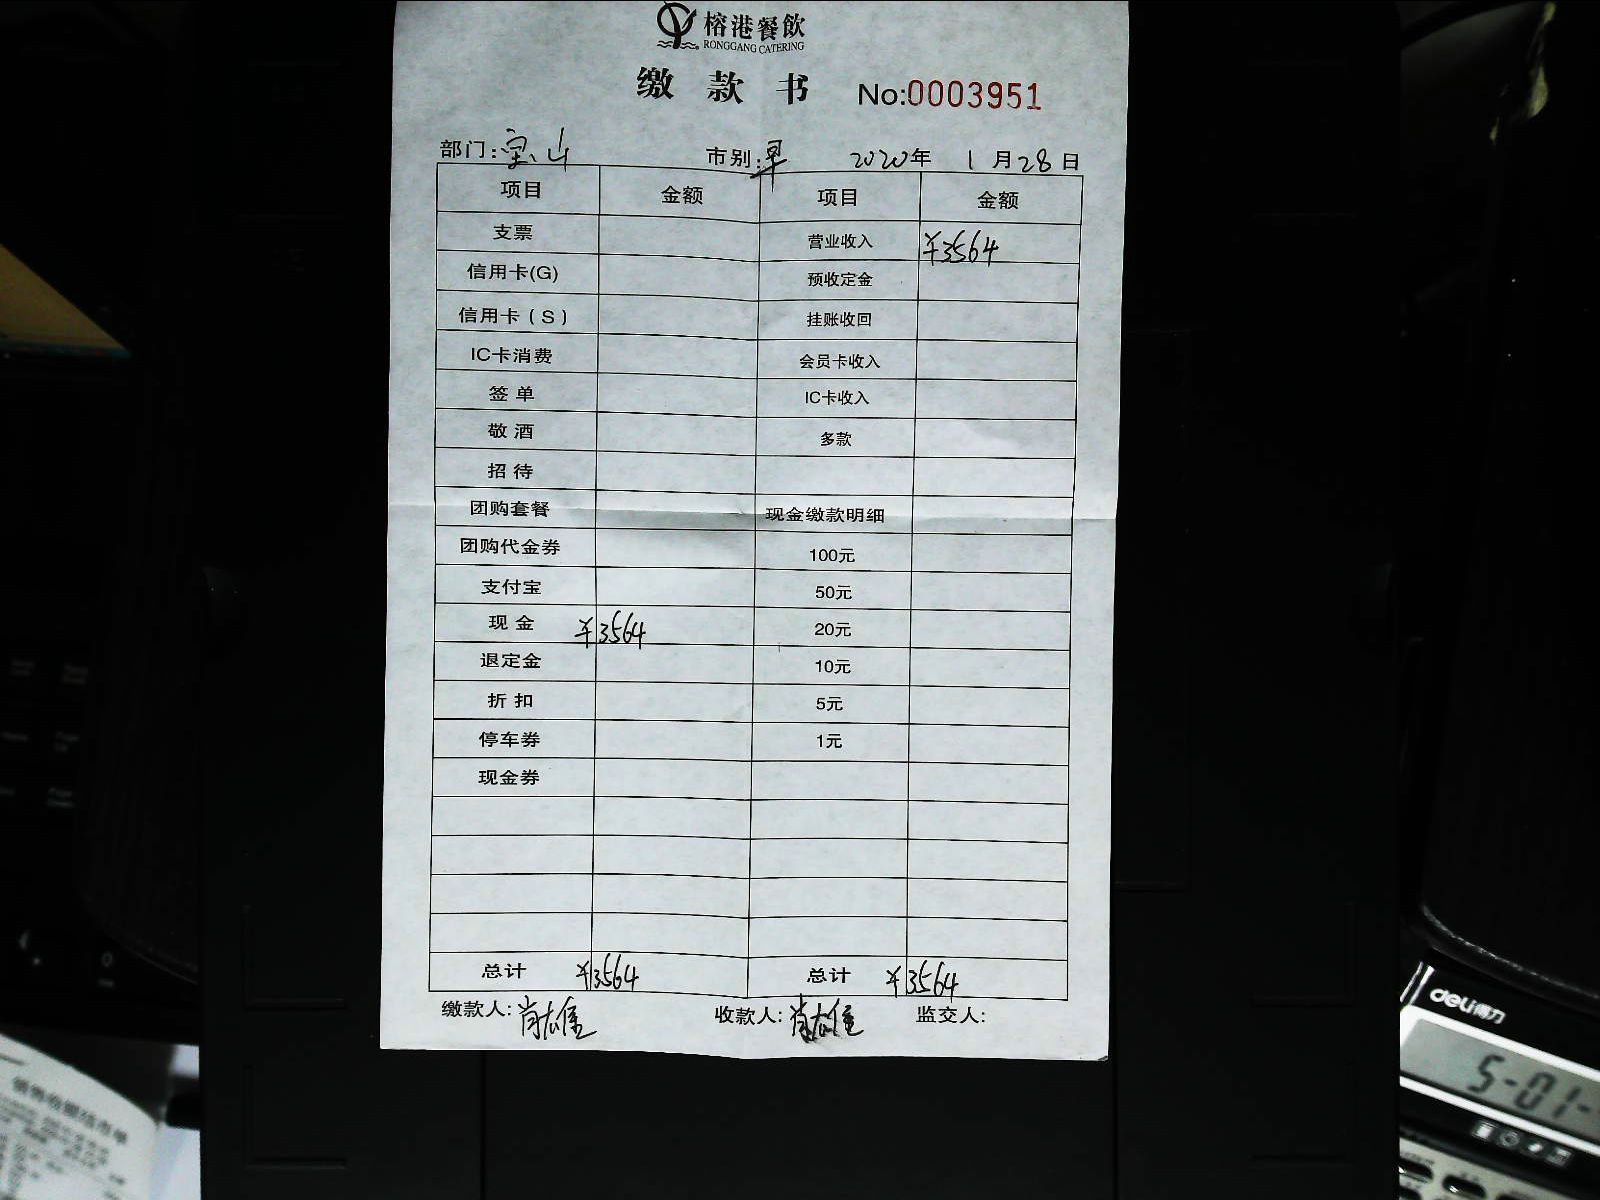 榕港餐飲
RONGGANG CATERING
缴款书 No:0003951
部门:宝山 市别:早 2020年1月28日
项目 金额 项目 金额
支票 营业收入 ¥3564
信用卡(G) 预收定金
信用卡(S) 挂账收回
IC卡消费 会员卡收入
签单 IC卡收入
敬酒 多款
招待
团购套餐 现金缴款明细
团购代金券 100元
支付宝 50元
现金 ¥3564 20元
退定金 10元
折扣 5元
停车券 1元
现金券
总计 ¥3564 总计 ¥3564
缴款人: 收款人: 监交人:
deli得力
5-01-